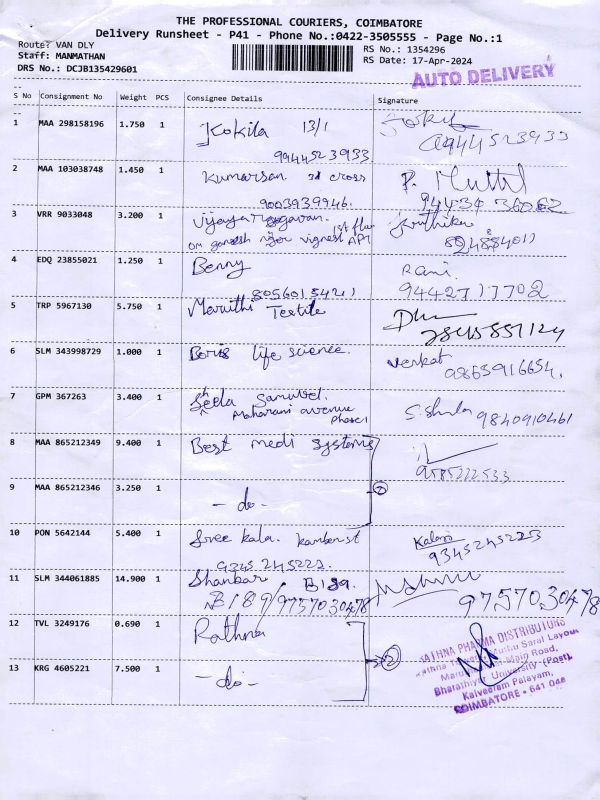 THE PROFESSIONAL COURIERS, COIMBATORE
Delivery Runsheet - P41 - Phone No.:0422-3505555 - Page No.:1
Route? VAN DLY
RS No.: 1354296
Staff: MANMATHAN
RS Date: 17-Apr-2024
DRS No.: DCJB135429601
AUTO DELIVERY
S No Consignment No Weight PCS Consignee Details Signature
1 MAA 298158196 1.750 1 Kokila 13/1
9944523933 9944523933
2 MAA 103038748 1.450 1 Kumarsan 3rd cross P. Muttil
9003939946. 94430 36062
3 VRR 9033048 3.200 1 Vijaya 1st floor Kruthika
om ganesh ngor vignesh APT 82488401)
4 EDQ 23855021 1.250 1 Benny Rani
8056018421) 9442717702
5 TRP 5967130 5.750 1 Maruthi Textile
6 SLM 343998729 1.000 1 Boris life science. Venkat
08655916654.
7 GPM 367263 3.400 1 Samuvel.
Maharani avenue Phase 1 9840910461
8 MAA 865212349 9.400 1 Best medi systems
9585222533
9 MAA 865212346 3.250 1 - do - 2
10 PON 5642144 5.400 1 Sree kala.
9345245223. 9345245223
11 SLM 344061885 14.900 1 Shankar B189.
B189/9757030478 9757030478
12 TVL 3249176 0.690 1 Rathna
13 KRG 4605221 7.500 1 - do - 2
RATHNA PHARMA DISTRIBUTORS
Saral Layout
Main Road,
Bharathiyar University (Post),
Kalveeram Palayam,
COIMBATORE - 641 046